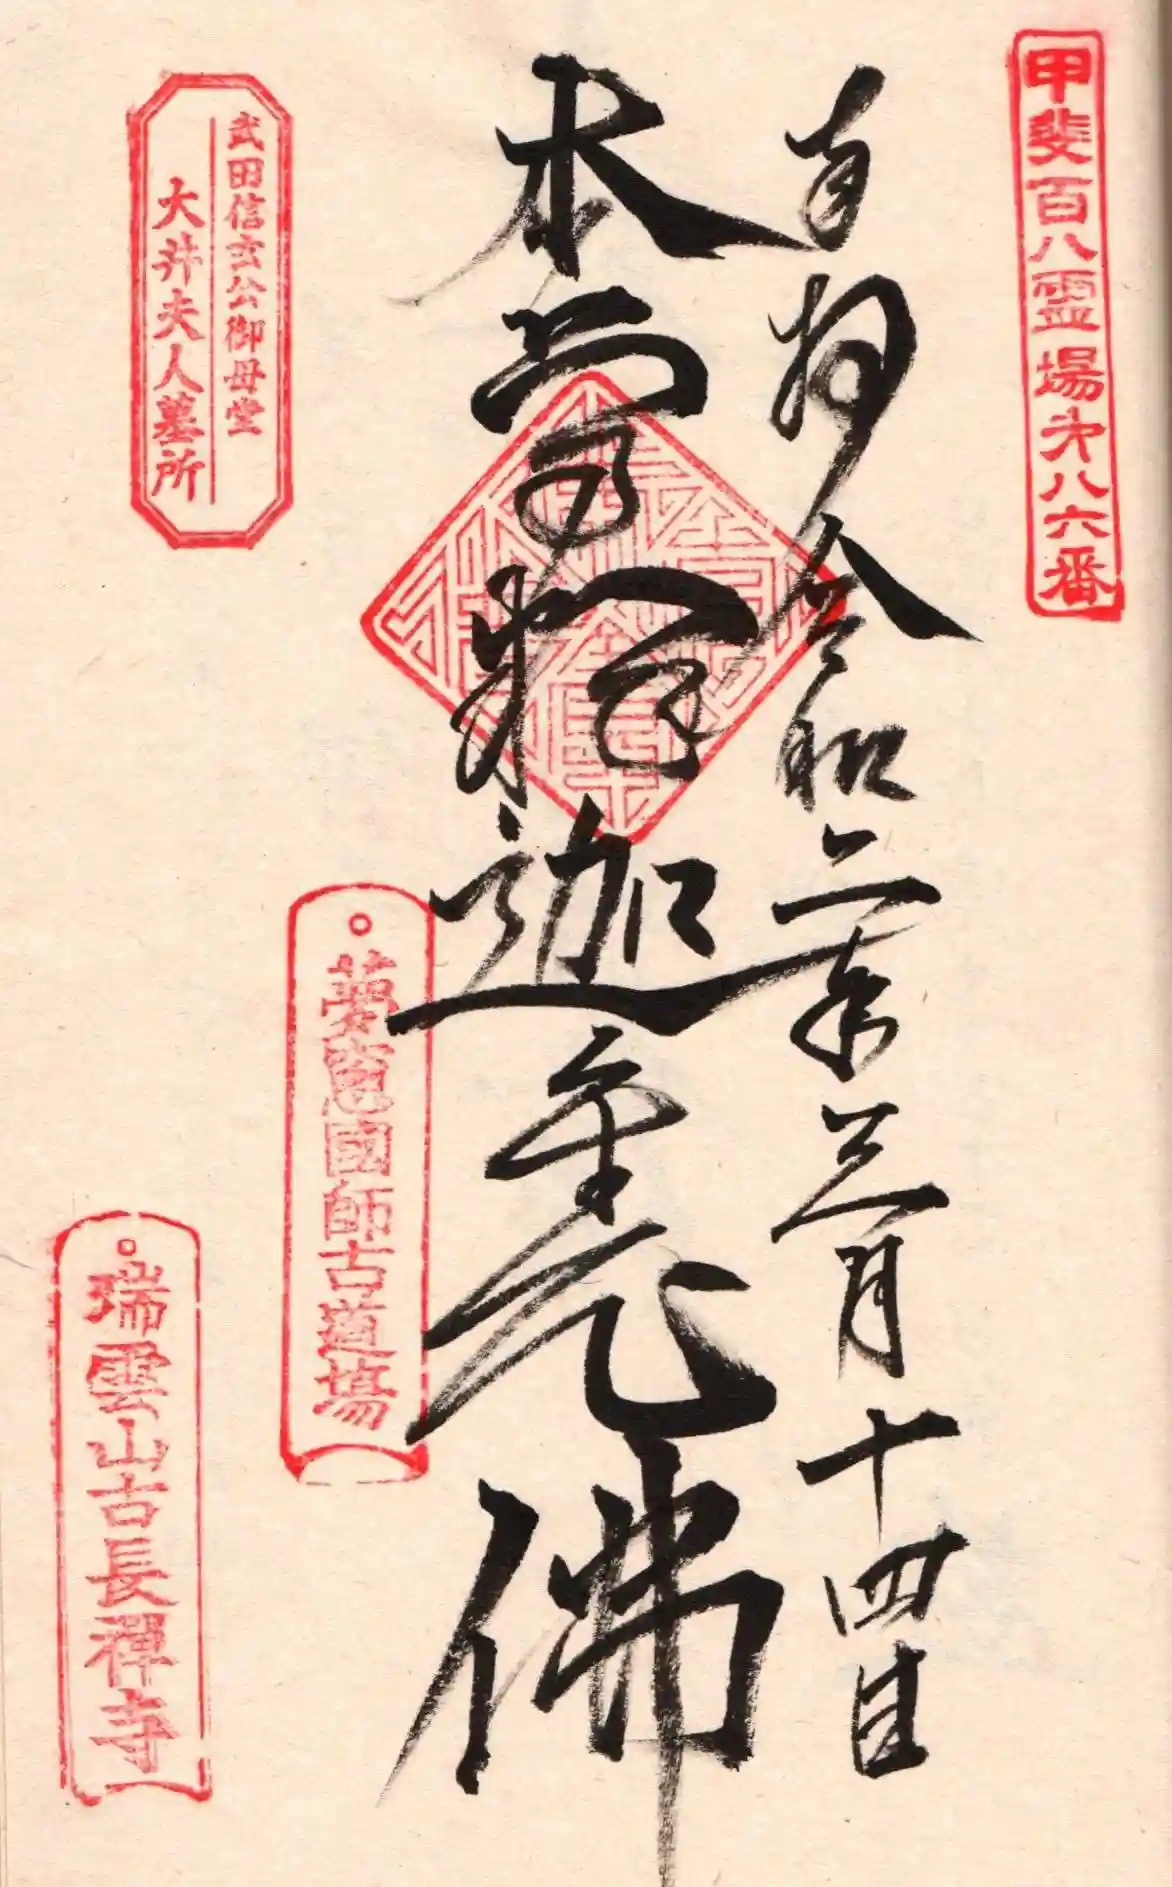 甲斐百八霊場第八六番
奉拝令和二年三月十四日
本尊釋迦牟尼佛
武田信玄公御母堂
大井夫人墓所
夢窓國師古道場
瑞雲山古長禪寺